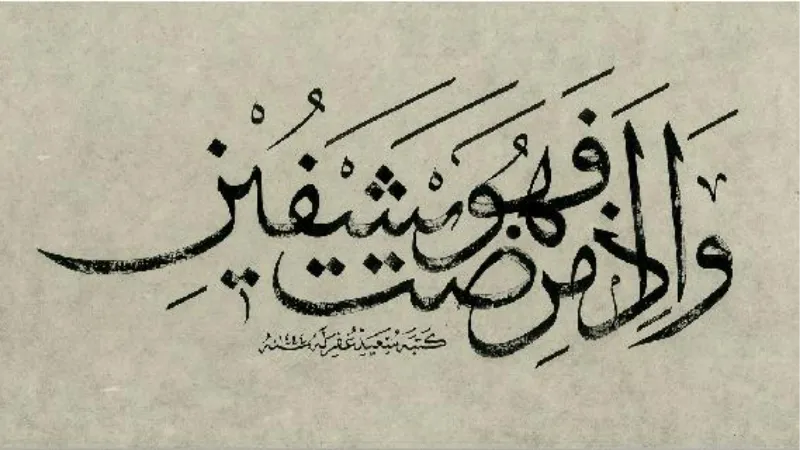 وَإِذَا مَرِضْتُ فَهُوَ يَشْفِينِ
كتبه سعيد غفر له سنة